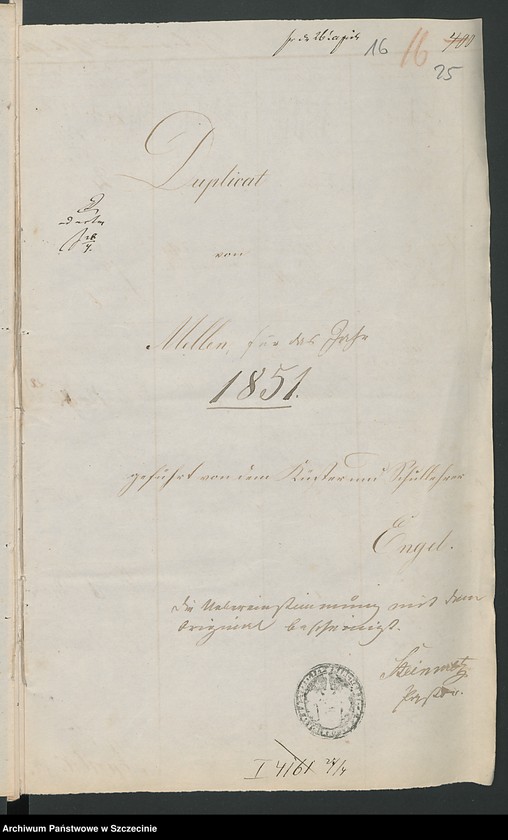 16 16 400
25
Duplicat
von
Mellen, für das Jahr
1851.
geführt von dem Küster und Schullehrer
Engel.
Die Uebereinstimmung mit dem
Original bescheinigt.
Steinmetz
Pastor.
I 4161 24/4
Archiwum Państwowe w Szczecinie